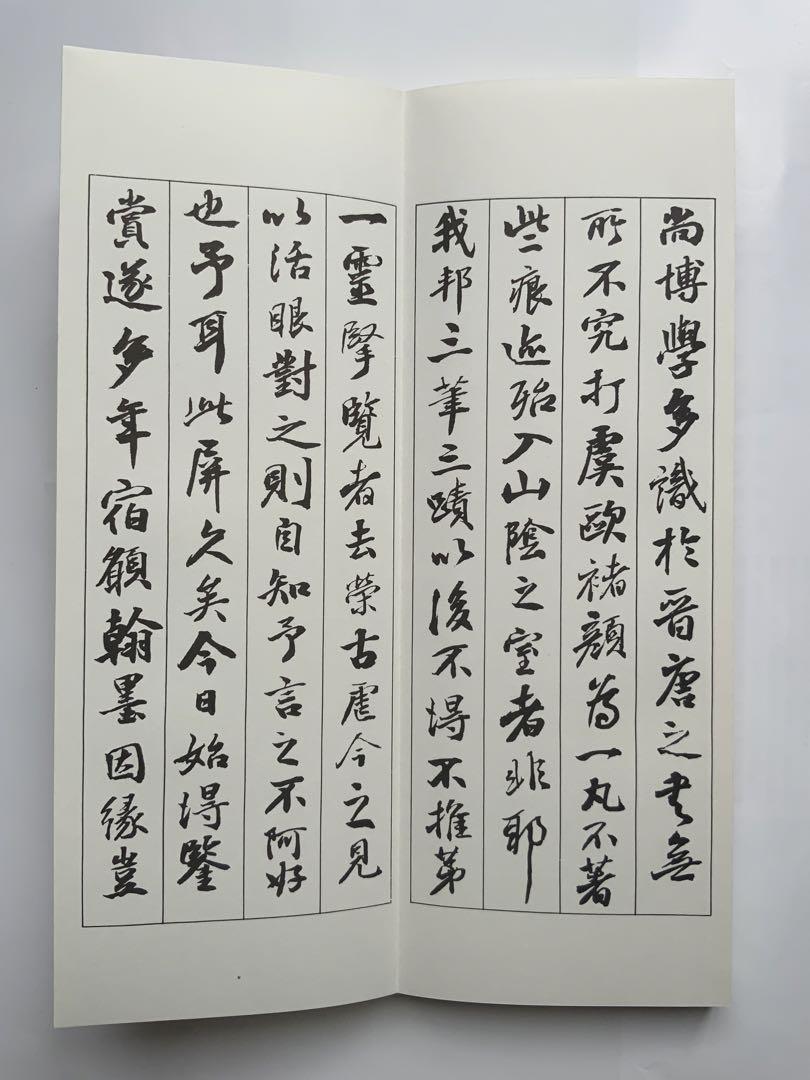 尚博學多識於晉唐之書無
所不究打虞歐褚顏為一丸不著
些痕迹殆入山陰之室者非耶
我邦三筆三蹟以後不得不推第
一靈腕覽者去榮古虐今之見
以活眼對之則自知予言之不阿好
也予耳此屏久矣今日始得鑒
賞遂多年宿願翰墨因緣豈